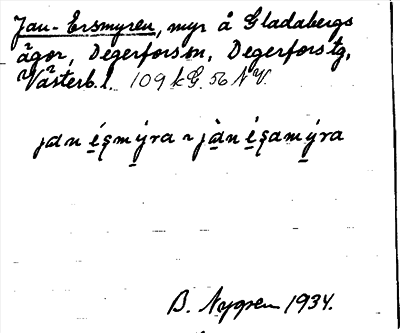 Jan-Ersmyren, myr å Gladabergs
ägor, Degerfors sn, Degerfors tg,
Västerb. l. 109 k G. 56 NV.
jan ésmýra ~ jàn ésamýra
B. Nygren 1934.